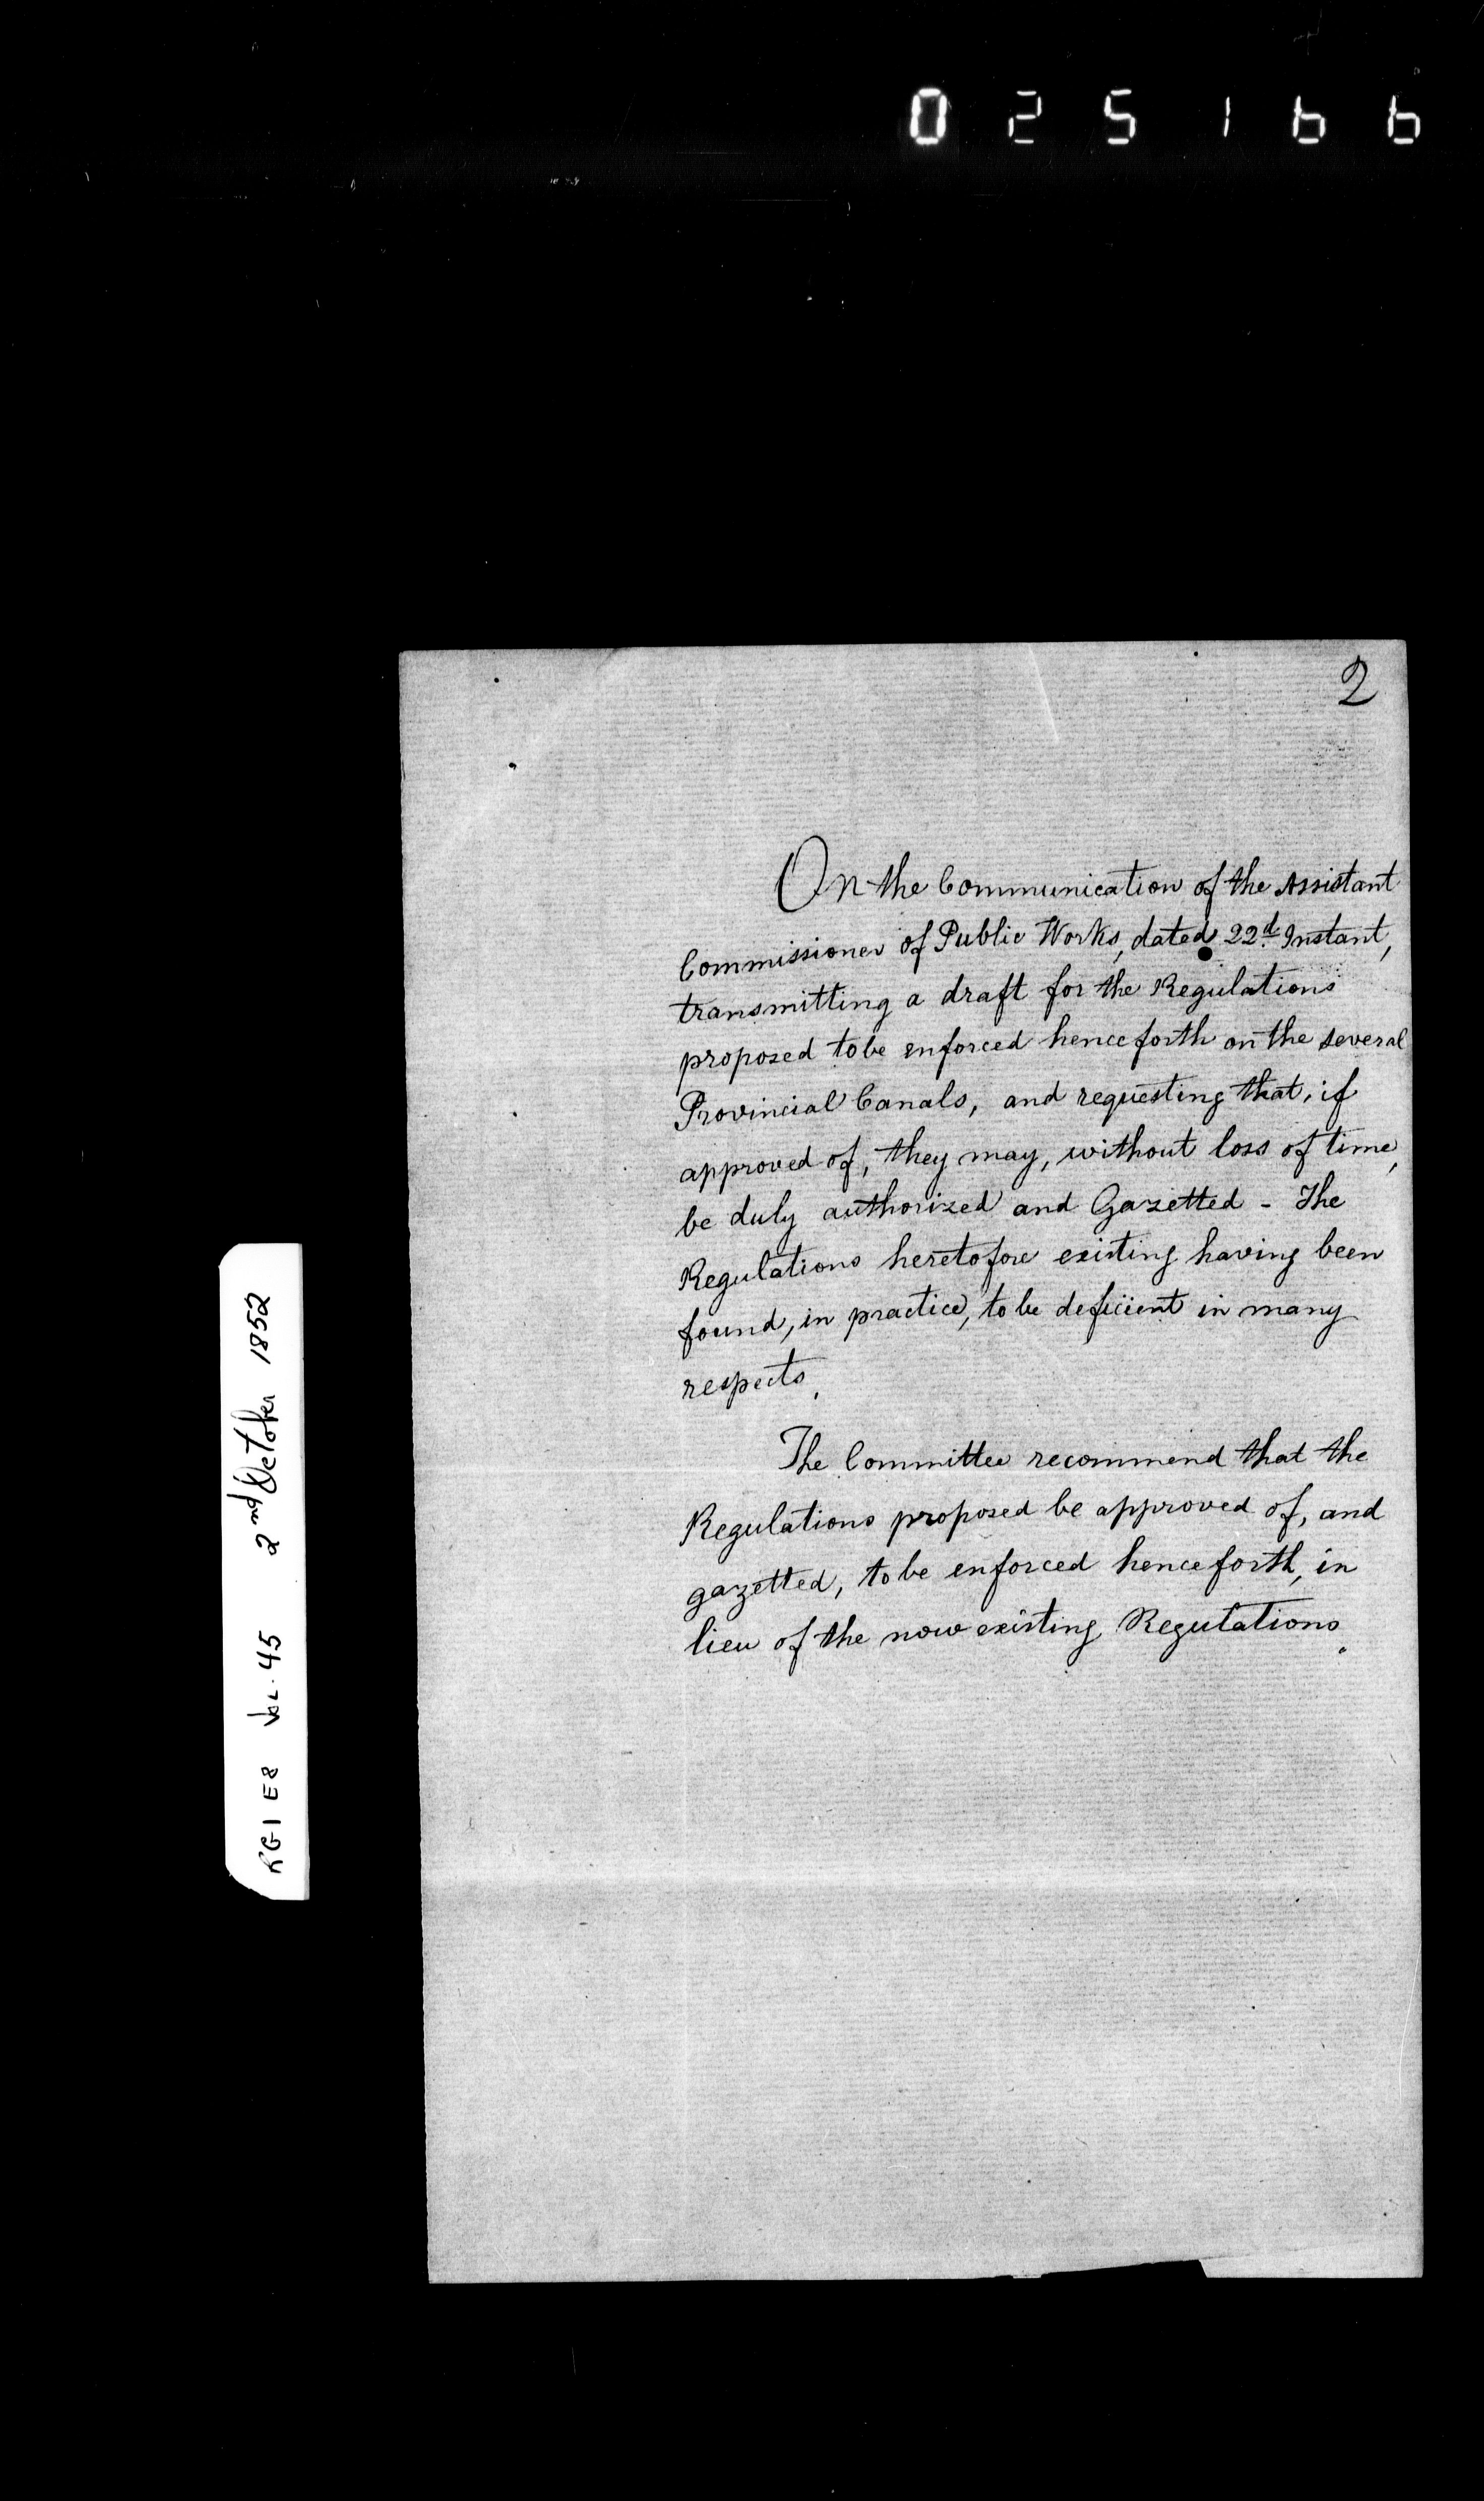 025166
2
On the Communication of the Assistant
Commissioner of Public Works, dated 22d. Instant,
transmitting a draft for the Regulations
proposed to be enforced henceforth on the several
Provincial Canals, and requesting that, if
approved of, they may, without loss of time,
be duly authorized and Gazetted - The
Regulations heretofore existing having been
found, in practice, to be deficient in many
respects.
The Committee recommend that the
Regulations proposed be approved of, and
gazetted, to be enforced henceforth, in
lieu of the now existing Regulations.
RG1 E8 Vol. 45 2nd October 1852